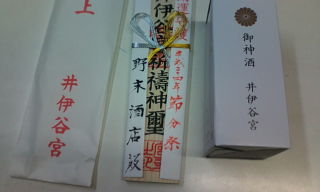 上
井伊谷宮
井伊谷宮祈禱神璽
節分祭
野末酒店殿
御神酒
井伊谷宮